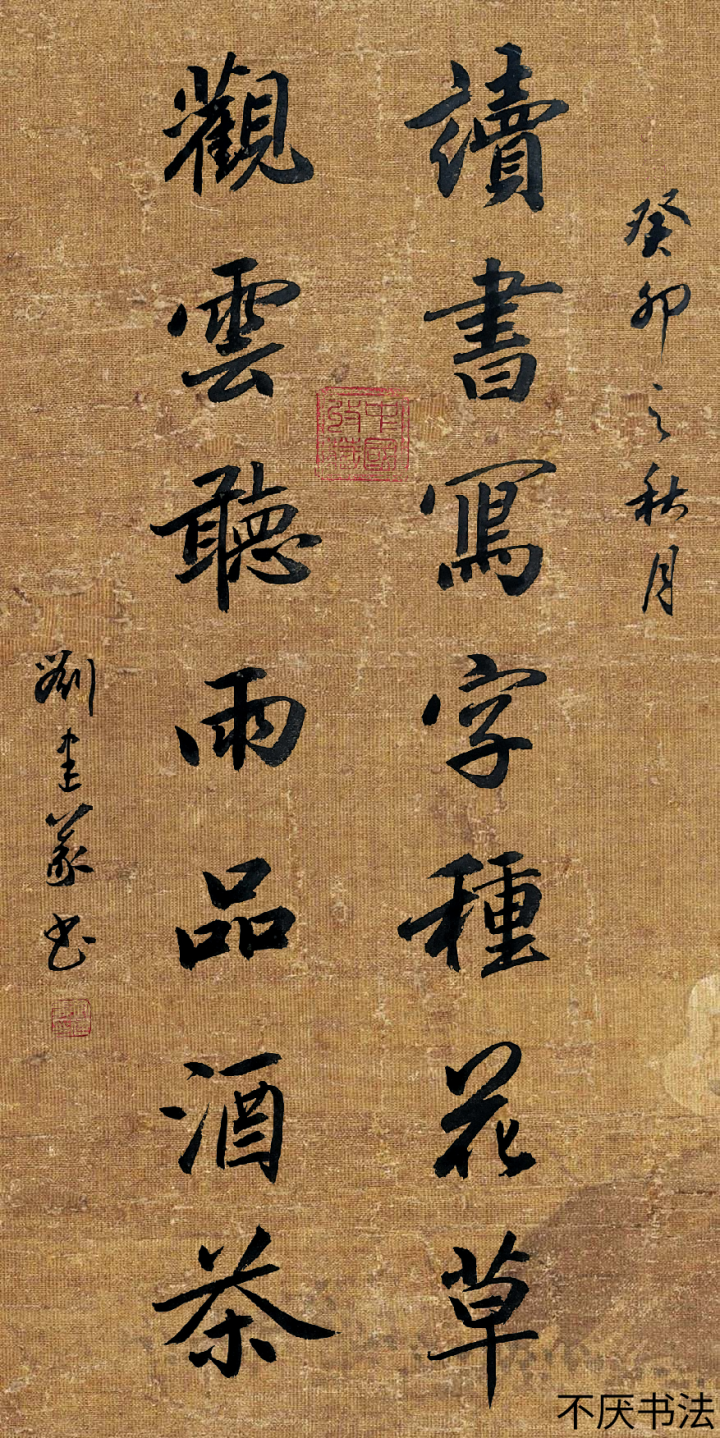 癸卯之秋月
讀書寫字種花草
觀雲聽雨品酒茶
劉建義书
不厌书法